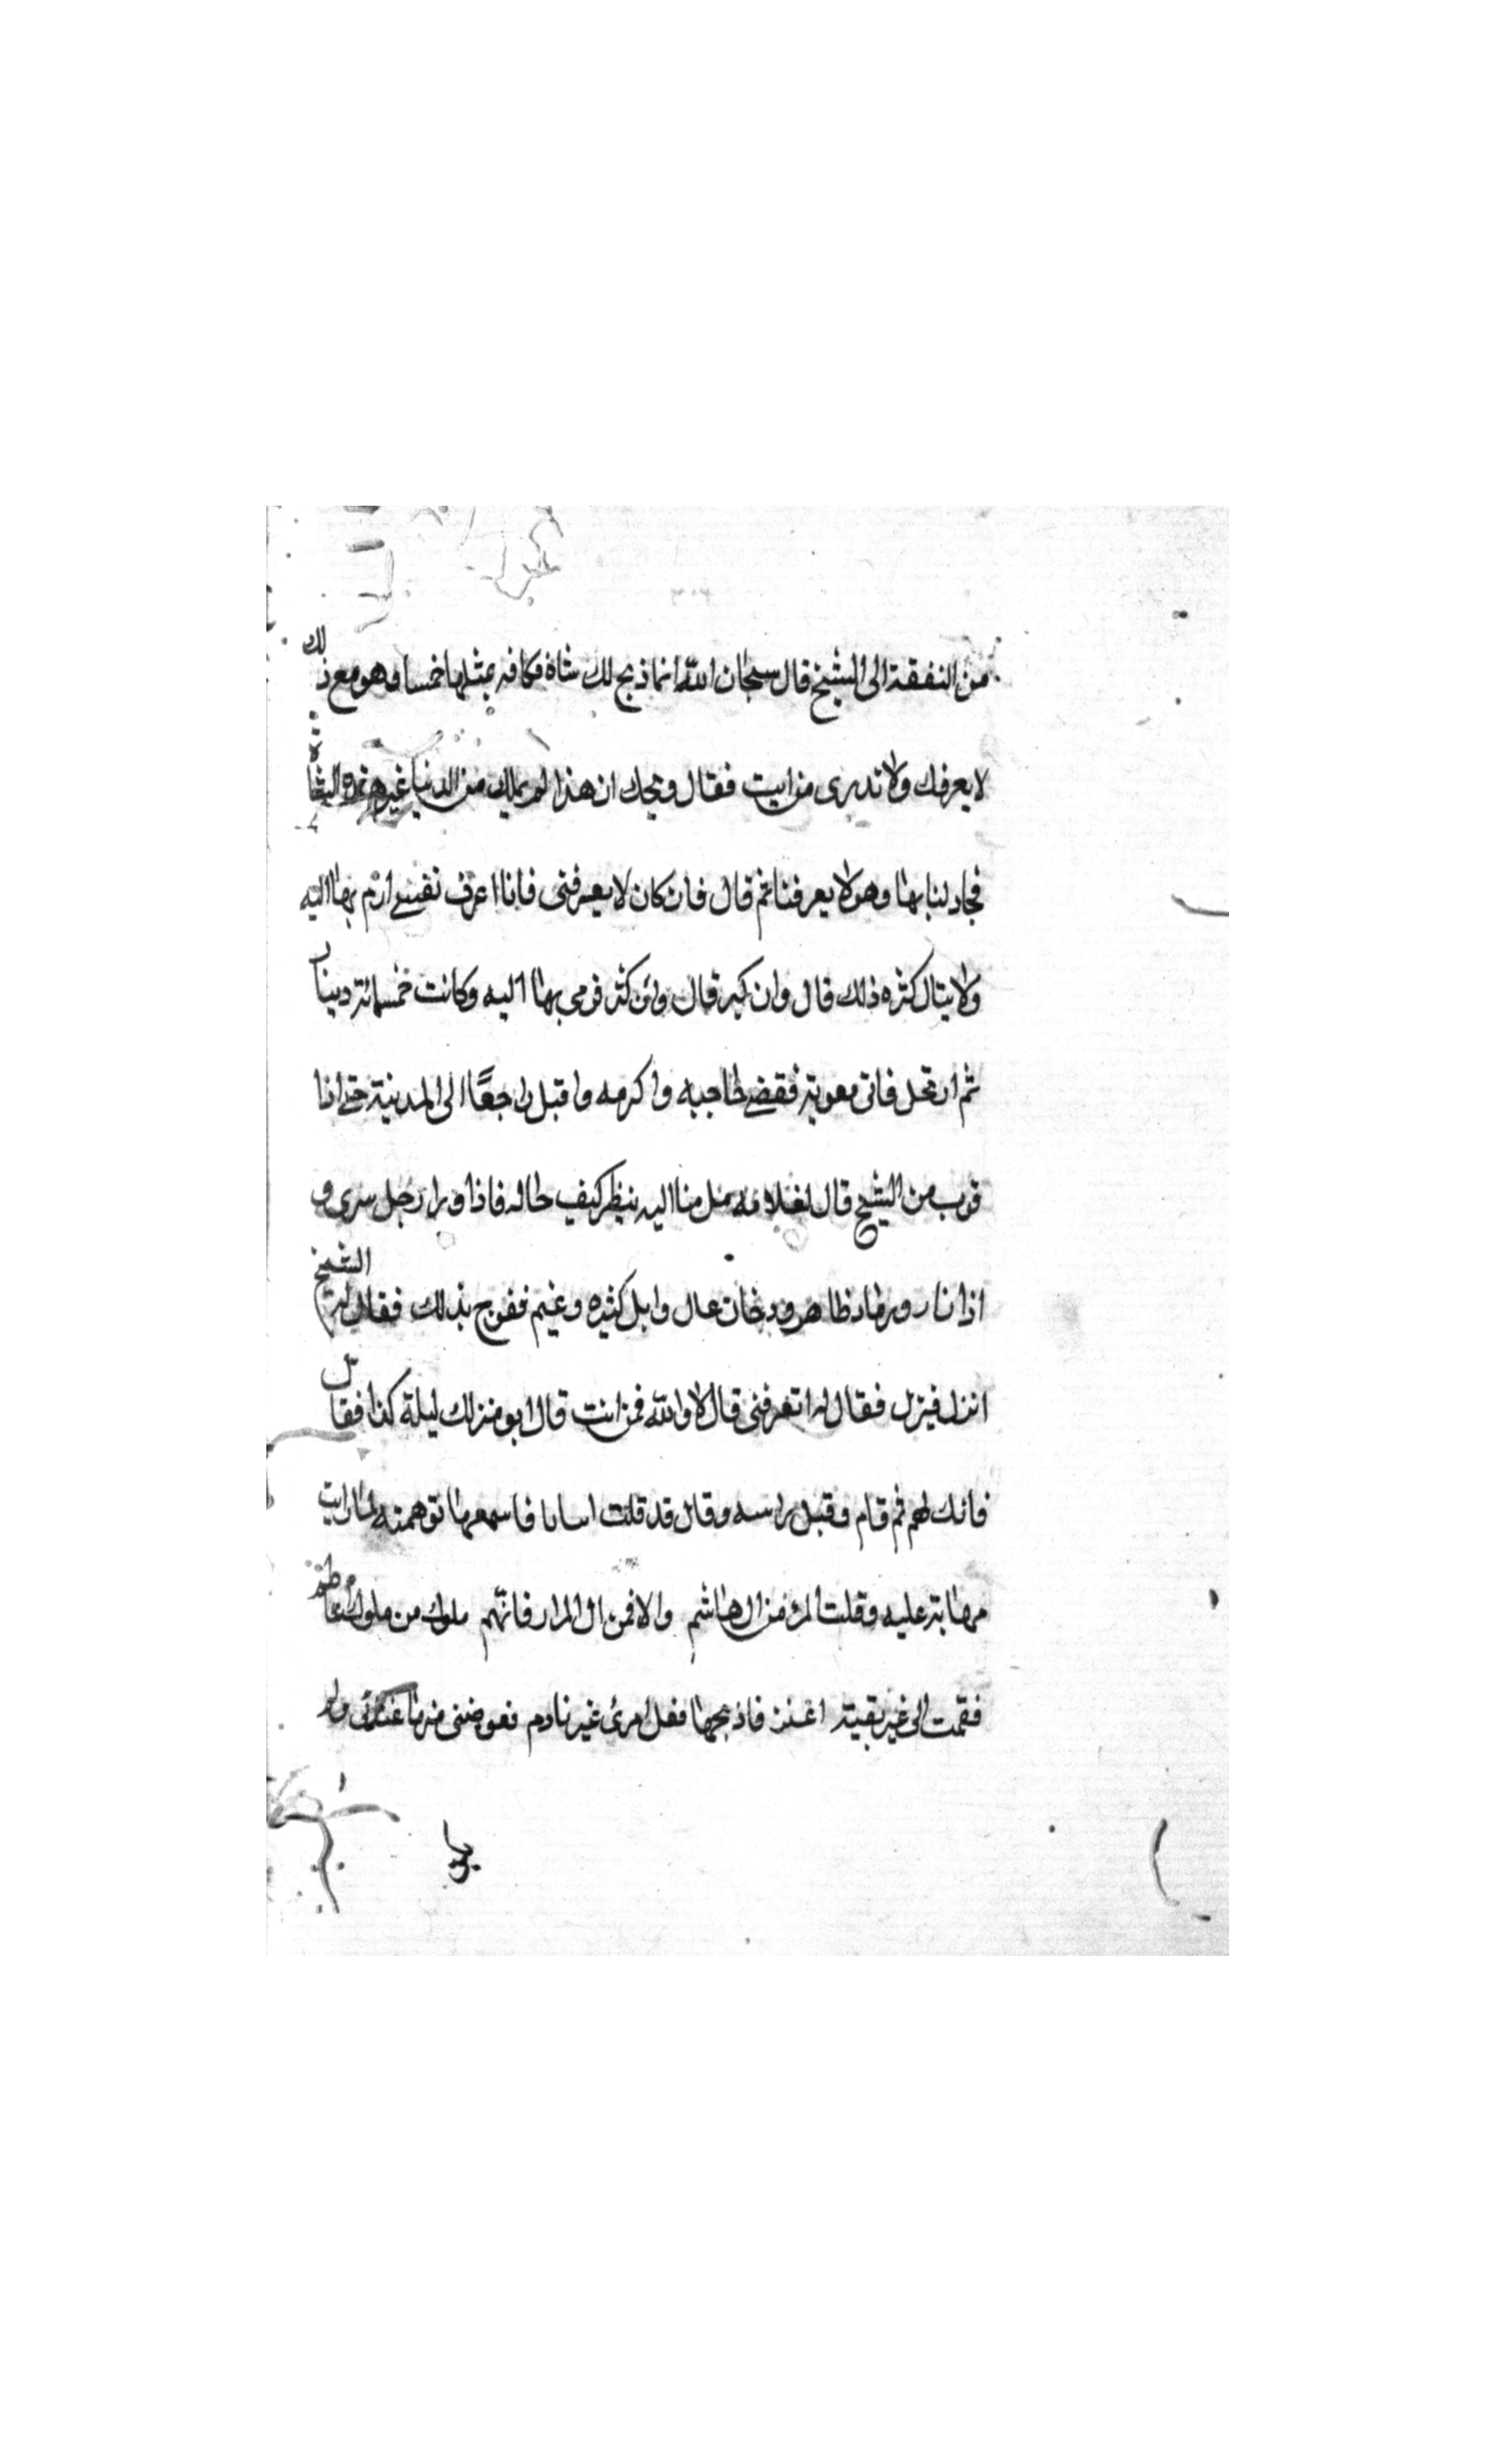 من النفقة الى الشيخ قال سبحان الله انما ذبح لك شاة فكافه بمثلها خمسا وهو مع ذلك
لا يعرفك ولا تدرى من انت فقال ويحك ان هذا لم يملك من الدنيا غير هذه الشاة
فجاد لنا بها وهو لا يعرفنا ثم قال فان كان لا يعرفنى فانا اعرف نفسى ارم بها اليه
ولا كثره ذلك قال وان قال وان كثر فرمى بها اليه وكانت خمسمائة دينار
ثم ارتحل فاتى معوية فقضى حاجته واكرمه واقبل راجعًا الى المدينة حتى اذا
قرب من الشيخ قال لغلامه مل بنا اليه ننظر كيف حاله فاذا رجل سرى و
اذا نار ورماد ظاهر ودخان عال وابل كثيره وغنم ففرح بذلك فقال له الشيخ
انزل فنزل فقال له اتعرفنى قال لا والله فمن انت قال منزلك ليلة كذا فقال
فانك لهم ثم قام وقبل راسه وقال قد قلت فاسمعها توهمته لما رايت
مهابة عليه وقلت المرء من ال هاشم والا فمن ال المرار فانهم ملوك من ملوك
فقمت الى بقية اعنز فاذبحها فعل امرئ غير نادم فعوضنى منها غنائى ولم